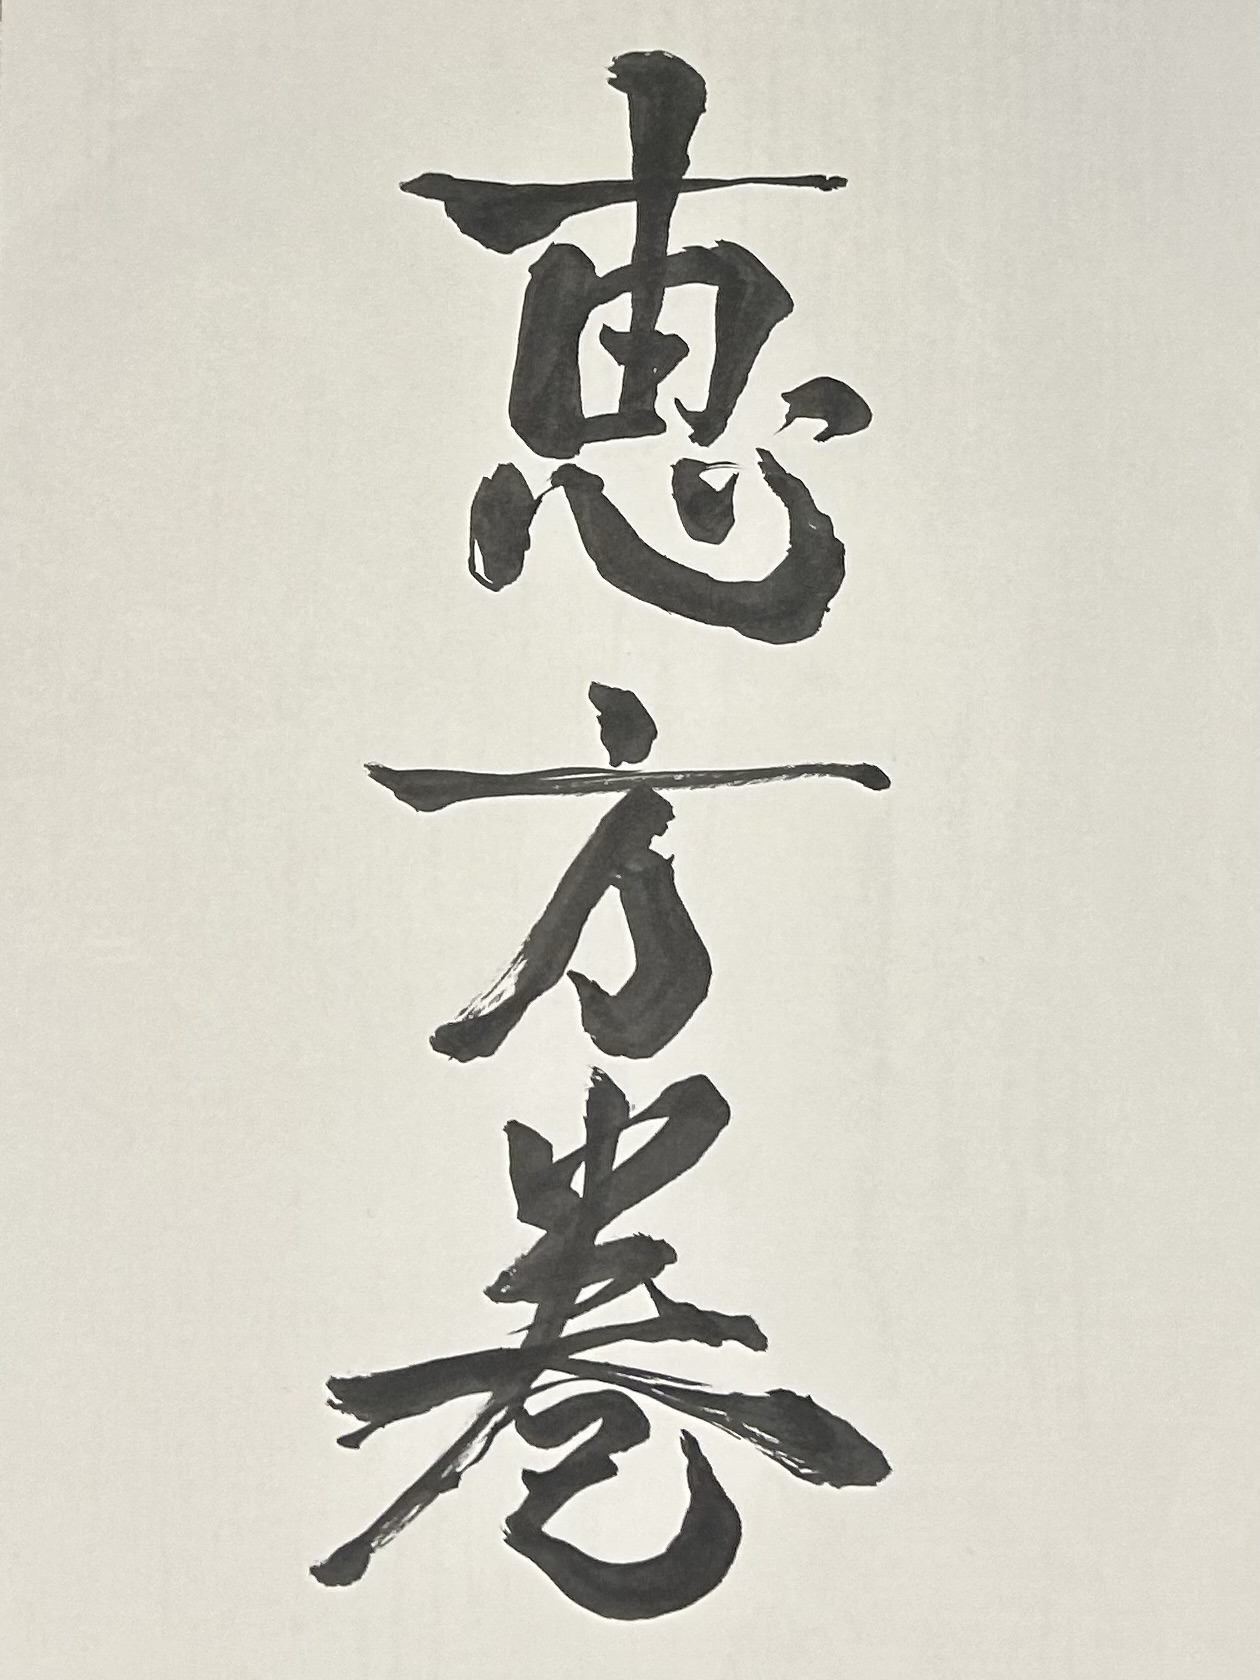 恵方巻